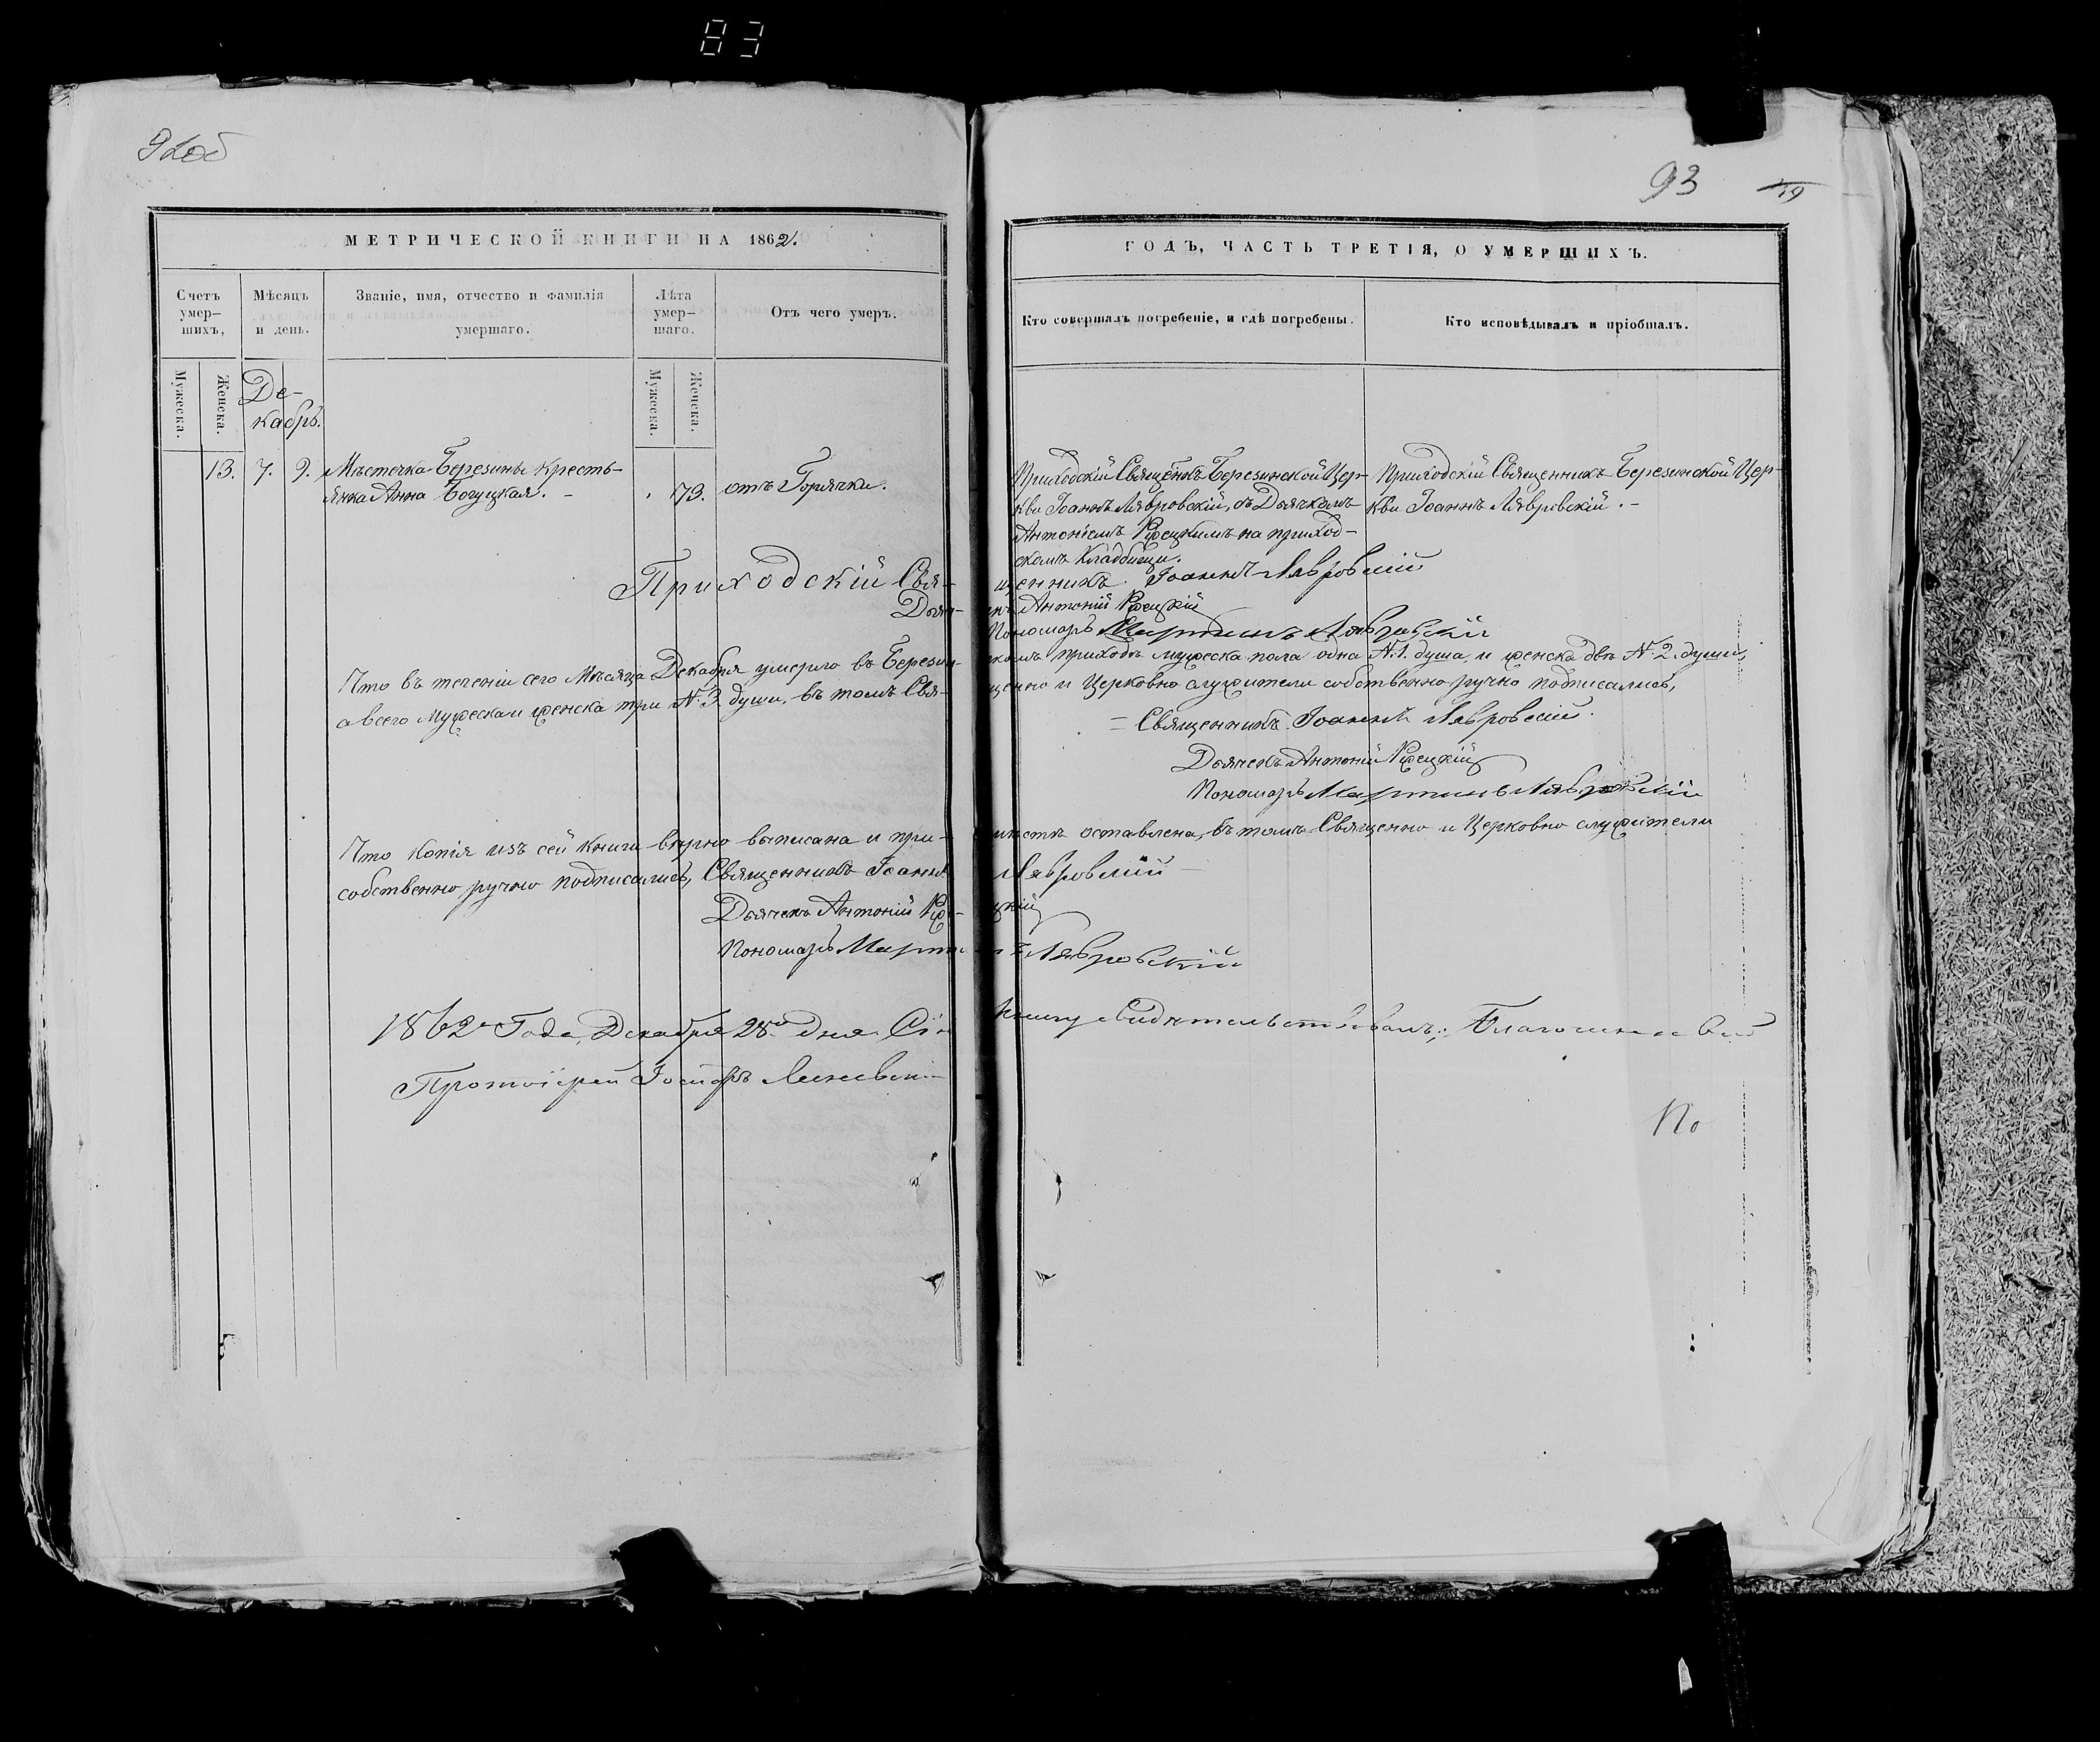 83
92об
93
19
МЕТРИЧЕСКОЙ КНИГИ НА 1862.
ГОДЪ, ЧАСТЬ ТРЕТІЯ, О УМЕРШИХЪ.
Счетъ умер–шихъ,
Мѣсяцъ и день.
Званіе, имя, отчество и фамилія умершаго.
Лѣта умер–шаго.
Отъ чего умеръ.
Кто совершалъ погребеніе, и гдѣ погребены.
Кто исповѣдывалъ и пріобщалъ.
Мужеска.
Женска.
Де-
кабрь.
Мужеска.
Женска.
13. 7. 9. Мѣстечка Березины Кресть-
янка Анна Богуцкая. -
73.
отъ Горячки.
Приходскій Священ̃къ Березинской Цер-
кви Іоаннъ Лявровскій, съ Дьячкомъ
Антоніемъ Ржецкимъ на приход-
скомъ Кладбищи.
Приходскій Священникъ Березинской Цер-
кви Іоаннъ Лявровскій. -
Приходскій Свя- щенникъ Іоаннъ Лявровскій
Дьяч- къ Антоній Ржецкій
Пономарь Мартинъ Лявровскій
Что въ теченіи сего Мѣсяца Декабря умерло въ Березин- скомъ приходѣ мужеска пола одна №1. душа, и женска двѣ №2. души,
а всего мужеска и женска три №3 души, въ томъ Свя- щенно и Церковно служители собственно ручно подписались,
= Священникъ Іоаннъ Лявровскій.
Дьячекъ Антоній Ржецкій
Пономарь Мартинъ Лявровскій
Что копія изъ сей книги вѣрно выписана и при- мѣстѣ оставлена, въ томъ Священно и Церковно служители
собственно ручно подписались, Священникъ Іоаннъ Лявровскій
Дьячекъ Антоній Рже- цкій
Пономарь Мартинъ Лявровскій
1862 Года Декабря 28 дня Сію Книгу свидѣтельствовалъ: Благочинный
Протоіерей Іосифъ